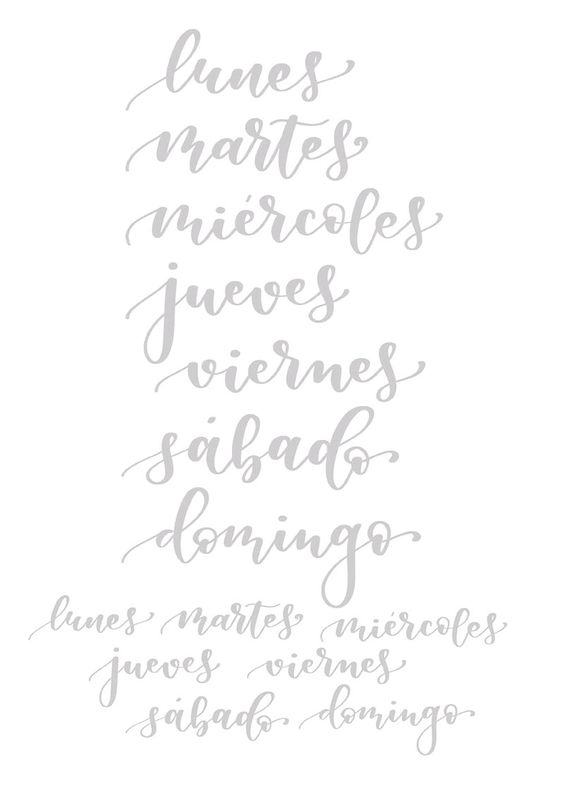 lunes
martes
miércoles
jueves
viernes
sábado
domingo
lunes martes miércoles
jueves viernes
sábado domingo